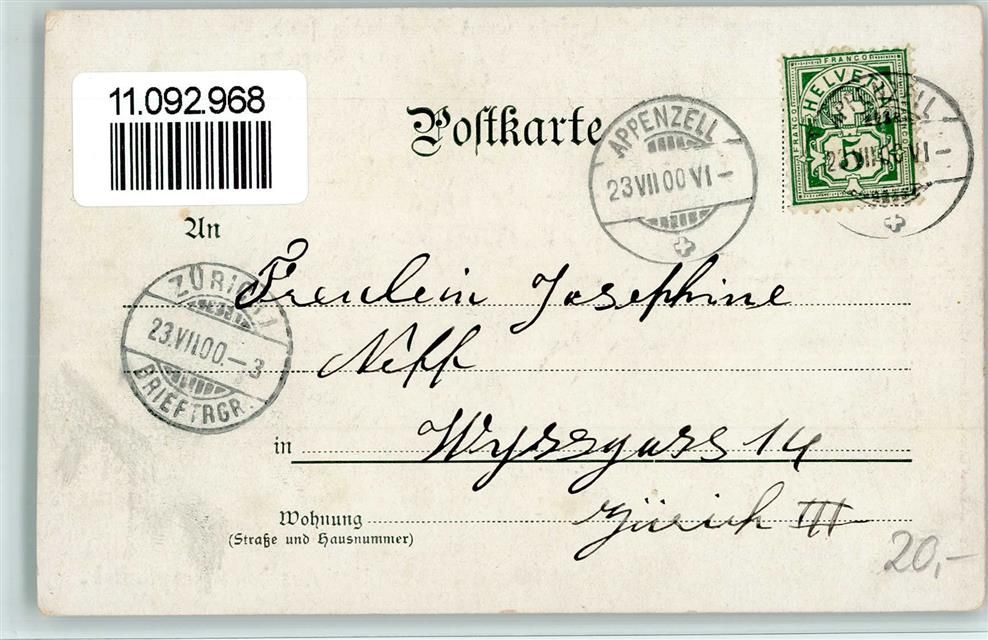 11.092.968
Postkarte
APPENZELL
23 VII 00 VI –
FRANCO
HELVETIA
FRANCO
FRANCO
5
APPENZELL
23 VII 00 VI –
An
ZÜRICH
23.VII.00.–3
BRIEFTRGR.
Freulein Josephine
Neff
in Wyssgass 14
Zürich III
Wohnung
(Straße und Hausnummer)
20,–